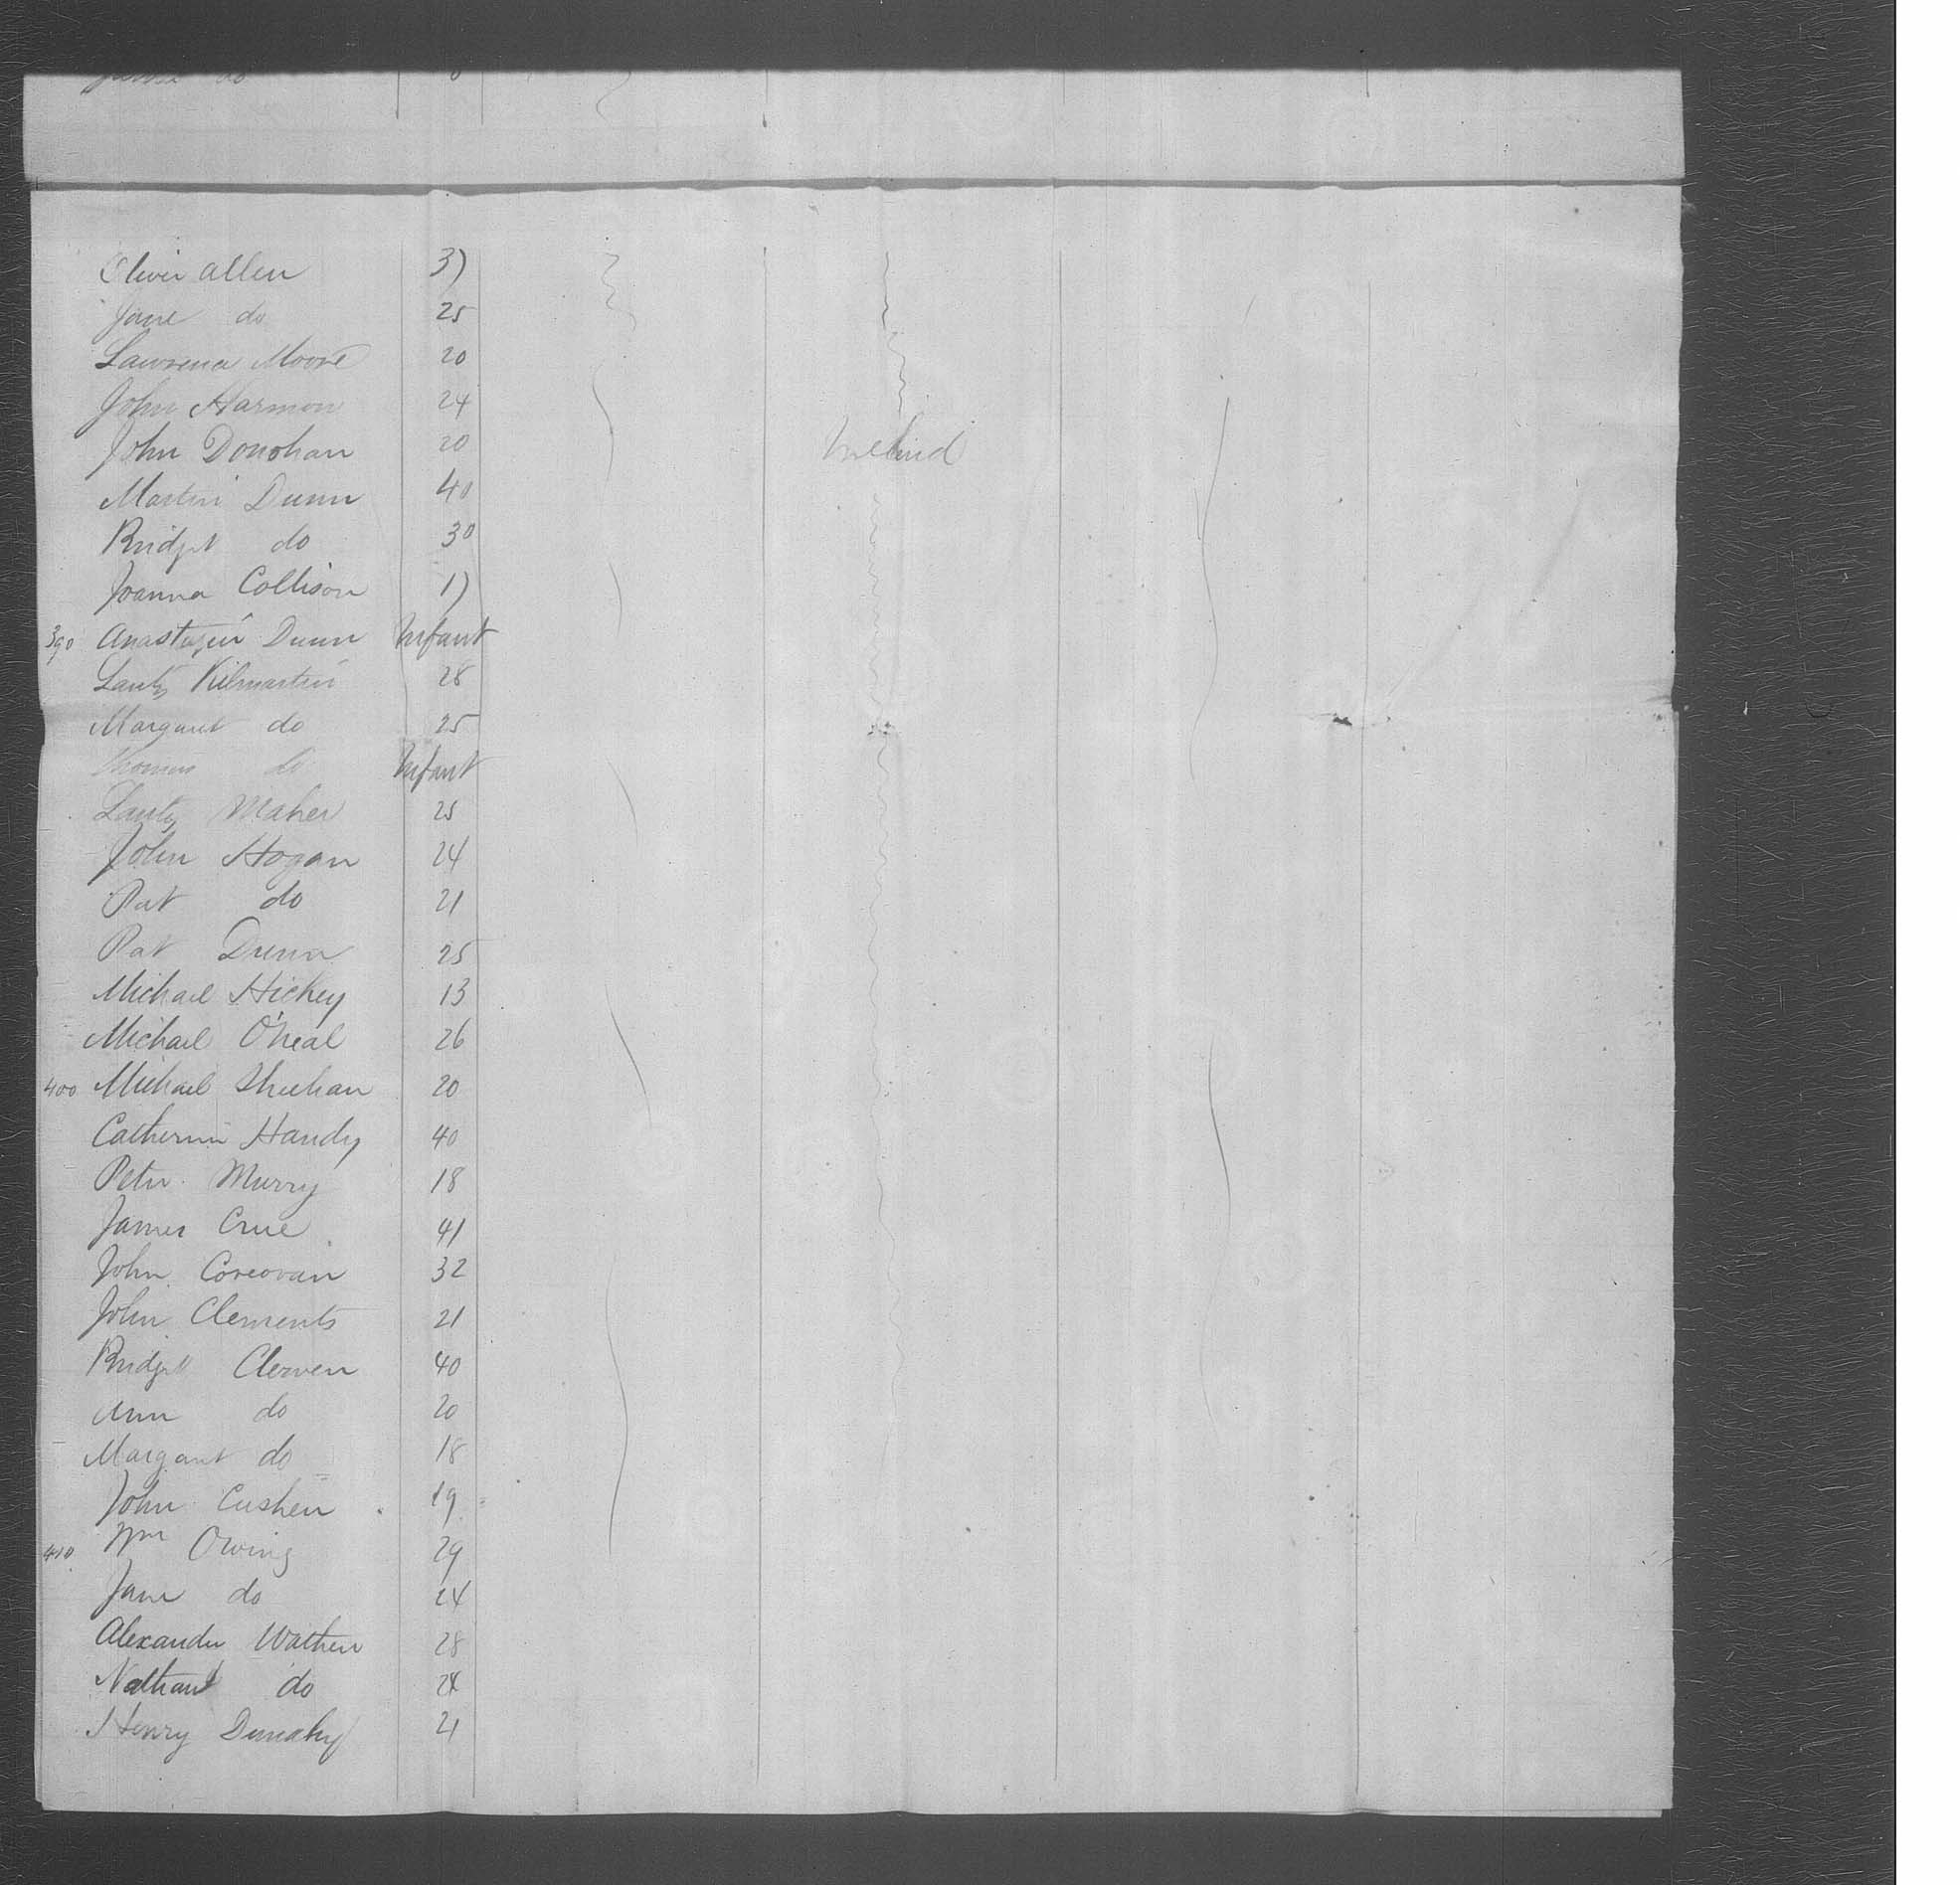 Oliver Allen 37
Jane do 25
Lawrence Moore 20
John Harmon 24
John Donohan 20
Ireland
Martin Dunn 40
Bridget do 30
Joanna Collison 17
390 Anastasia Dunn Infant
Lanty Kilmartin 28
Margaret do 25
Thomas do Infant
Lanty Maher 25
John Hogan 24
Pat do 21
Pat Dunn 25
Michael Hickey 13
Michael O'Neal 26
400 Michael Sheehan 20
Catherine Handy 40
Peter Murry 18
James Crue 41
John Corcoran 32
John Clements 21
Bridget Clerven 40
Ann do 20
Margaret do 18
John Cushen 19
410 Wm Owing 29
Jane do 24
Alexander Wathen 28
do 24
Henry Dunahy 21